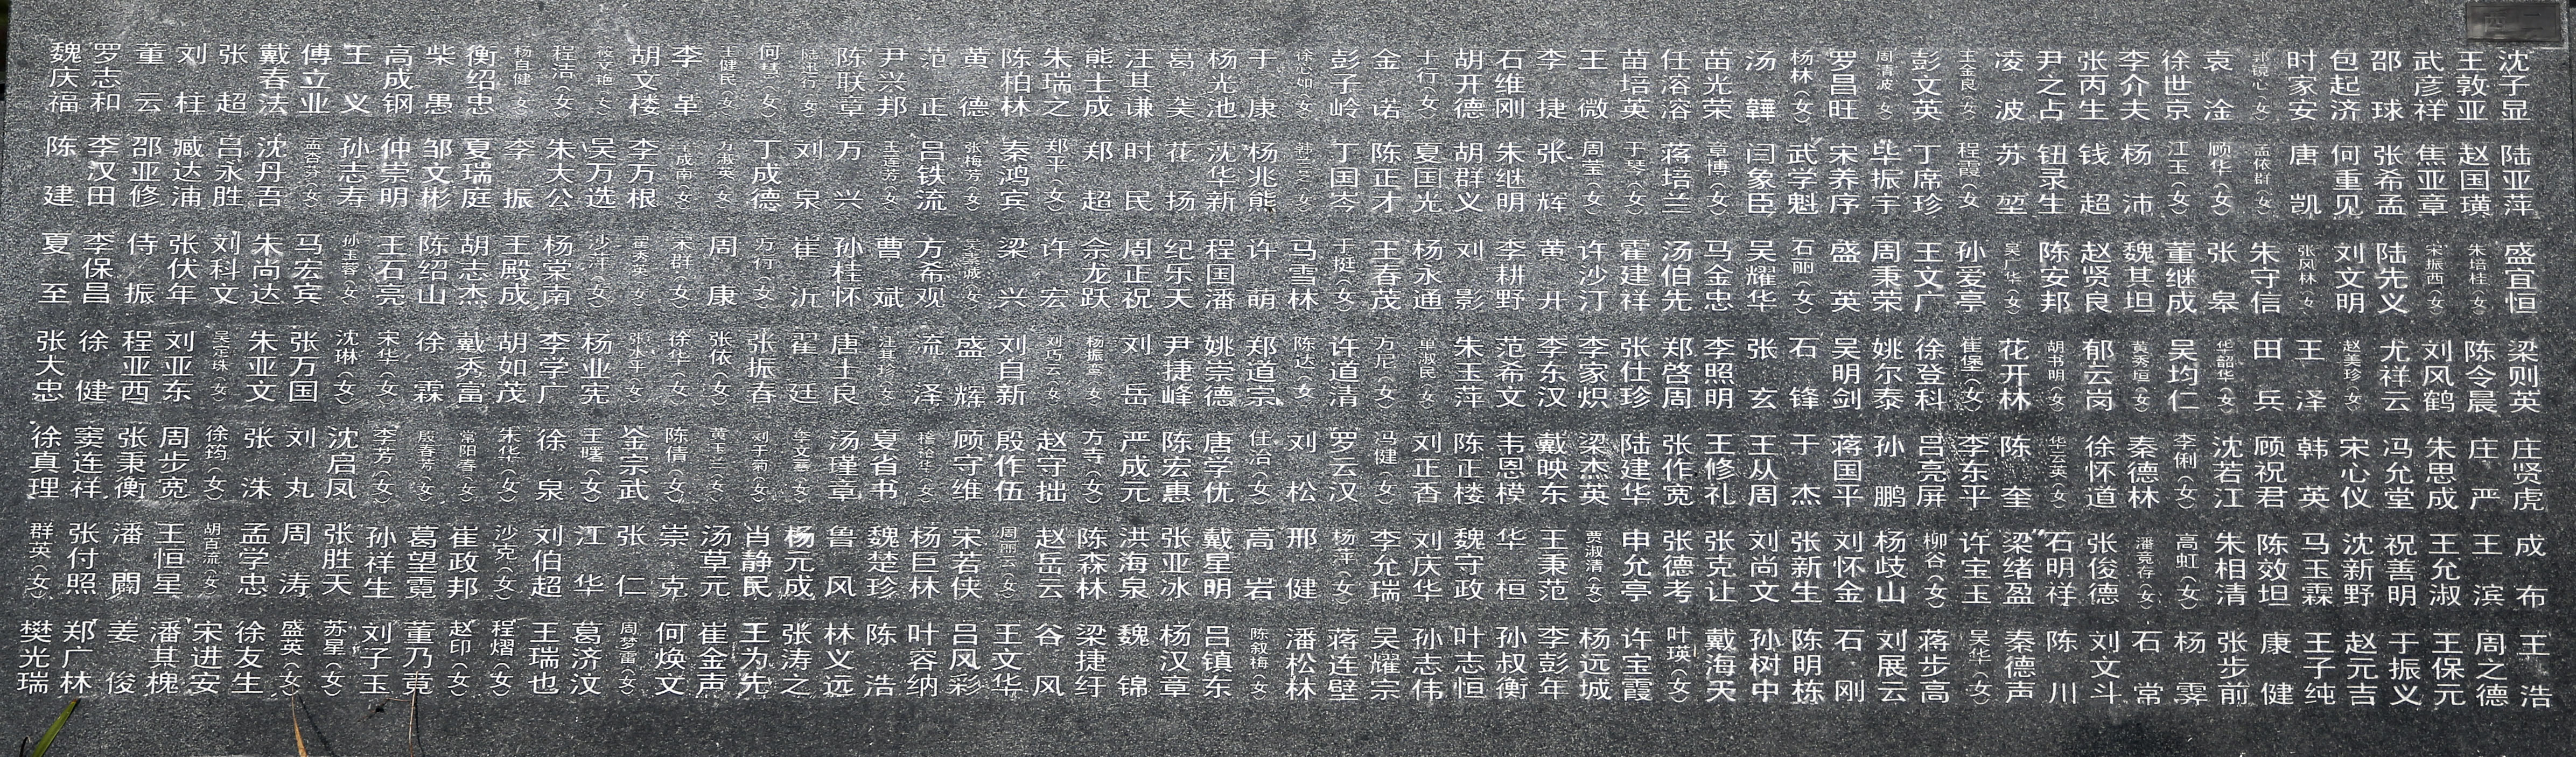 西二
沈子显 王敦亚 武彦祥 邵球 包起济 时家安 张镜心(女) 袁淦 徐世京 李介夫 张丙生 尹之占 凌波 王金良(女) 彭文英 周清波(女) 罗昌旺 杨林(女) 汤韡 苗光荣 任溶溶 苗培英 王微 李捷 石维刚 胡开德 于行(女) 金诺 彭子岭 徐心如(女) 于康 杨光池 葛奖 汪其谦 熊士成 朱瑞之 陈柏林 黄德 范正 尹兴邦 陈联章 何慧(女) 王健民(女) 李革 胡文楼 筱文艳(女) 程洁(女) 杨自健(女) 衡绍忠 柴愚 高成钢 王义 傅立业 戴春法 张超 刘柱 董云 罗志和 魏庆福
陆亚萍 赵国璜 焦亚章 张希孟 何重见 唐凯 孟依群(女) 顾华(女) 江玉(女) 杨沛 钱超 钮录生 苏堃 程霞(女) 丁席珍 毕振宇 宋养序 武学魁 闫象臣 章博(女) 蒋培兰 于琴(女) 周莹(女) 张辉 朱继明 胡群义 夏国光 陈正才 丁国岑 韩兰(女) 杨兆熊 沈华新 花扬 时民 郑超 郑平(女) 秦鸿宾 张梅芳(女) 吕铁流 王莲芳(女) 万兴 刘泉 丁成德 万淑英(女) 成南(女) 李万根 吴万选 朱大公 李振 夏瑞庭 邹文彬 仲崇明 孙志寿 孟杏芬(女) 沈丹吾 吕永胜 臧达浦 邵亚修 李汉田 陈建
盛宜恒 朱培桂(女) 宋振西(女) 陆先义 刘文明 张风林(女) 朱守信 张皋 董继成 魏其坦 赵贤良 陈安邦 吴广华(女) 孙爱亭 王文广 周秉荣 盛英 石丽(女) 吴耀华 马金忠 汤伯先 霍建祥 许沙汀 黄升 李耕野 刘影 杨永通 王春茂 于挺(女) 马雪林 许萌 程国潘 纪乐天 周正祝 佘龙跃 许宏 梁兴 吴孝诚(女) 方希观 曹斌 孙桂怀 崔沅 方行(女) 周康 宋群(女) 崔秀英(女) 沙萍(女) 杨棠南 王殿成 胡志杰 陈绍山 王石亮 孙玉蓉(女) 马宏宾 朱尚达 刘科文 张伏年 侍振 李保昌 夏至
梁则英 陈令晨 刘风鹤 尤祥云 赵美珍(女) 王泽 田兵 华韶华(女) 吴均仁 黄秀垣(女) 郁云岗 胡书明(女) 花开林 崔堡(女) 徐登科 姚尔泰 吴明剑 石锋 张玄 李照明 郑啓周 张仕珍 李家炽 李东汉 范希文 朱玉萍 单淑民(女) 方尼(女) 许道清 陈达(女) 郑道宗 姚崇德 尹捷峰 刘岳 杨振鸾(女) 刘巧云(女) 刘自新 盛辉 流泽 汪其珍(女) 唐士良 翟廷 张振春 张依(女) 徐华(女) 张水平(女) 杨业宪 李学广 胡如茂 戴秀富 徐霖 宋华(女) 沈琳(女) 张万国 朱亚文 吴定珠(女) 刘亚东 程亚西 徐健 张大忠
庄贤虎 庄严 朱思成 冯允堂 宋心仪 韩英 顾祝君 沈若江 李俐(女) 秦德林 徐怀道 华云英(女) 陈奎 李东平 吕亮屏 孙鹏 蒋国平 于杰 王从周 王修礼 张作宽 陆建华 梁杰英 戴映东 韦恩模 陈正楼 刘正香 冯健(女) 罗云汉 刘松 任冶(女) 唐学优 陈宏惠 严成元 方寺(女) 赵守拙 殷作伍 顾守维 稽论华(女) 夏省书 汤瑾章 李文慧(女) 刘于菊(女) 黄玉兰(女) 陈倩(女) 金宗武 王曙(女) 徐泉 朱华(女) 常阳春(女) 殷春芳(女) 李芳(女) 沈启凤 刘丸 张洙 徐筠(女) 周步宽 张秉衡 窦连祥 徐真理
成布 王滨 王允淑 祝善明 沈新野 马玉霖 陈效坦 朱相清 高虹(女) 潘竞存(女) 张俊德 石明祥 梁绪盈 许宝玉 柳谷(女) 杨歧山 刘怀金 张新生 刘尚文 张克让 张德考 申允亭 贾淑清(女) 王秉范 华桓 魏守政 刘庆华 李允瑞 杨苹(女) 邢健 高岩 戴星明 张亚冰 洪海泉 陈森林 赵岳云 周丽云(女) 宋若侠 杨巨林 魏楚珍 鲁风 杨元成 肖静民 汤草元 崇克 张仁 江华 刘伯超 沙克(女) 崔政邦 葛望霓 孙祥生 张胜天 周涛 孟学忠 胡百流(女) 王恒星 潘闆 张付照 群英(女)
王浩 周之德 王保元 于振义 赵元吉 王子纯 康健 张步前 杨雯 石常 刘文斗 陈川 秦德声 吴华(女) 蒋步高 刘展云 石刚 陈明栋 孙树中 戴海天 叶瑛(女) 许宝霞 杨远城 李彭年 孙叔衡 叶志恒 孙志伟 吴耀宗 蒋连壁 潘松林 陈叙梅(女) 吕镇东 杨汉章 魏锦 梁捷纡 谷风 王文华 吕风彩 叶容纳 陈浩 林义远 张涛之 王为先 崔金声 何焕文 周梦雷(女) 葛济汶 王瑞也 程熠(女) 赵印(女) 董乃竟 刘子玉 苏星(女) 盛英(女) 徐友生 宋进安 潘其槐 姜俊 郑广林 樊光瑞